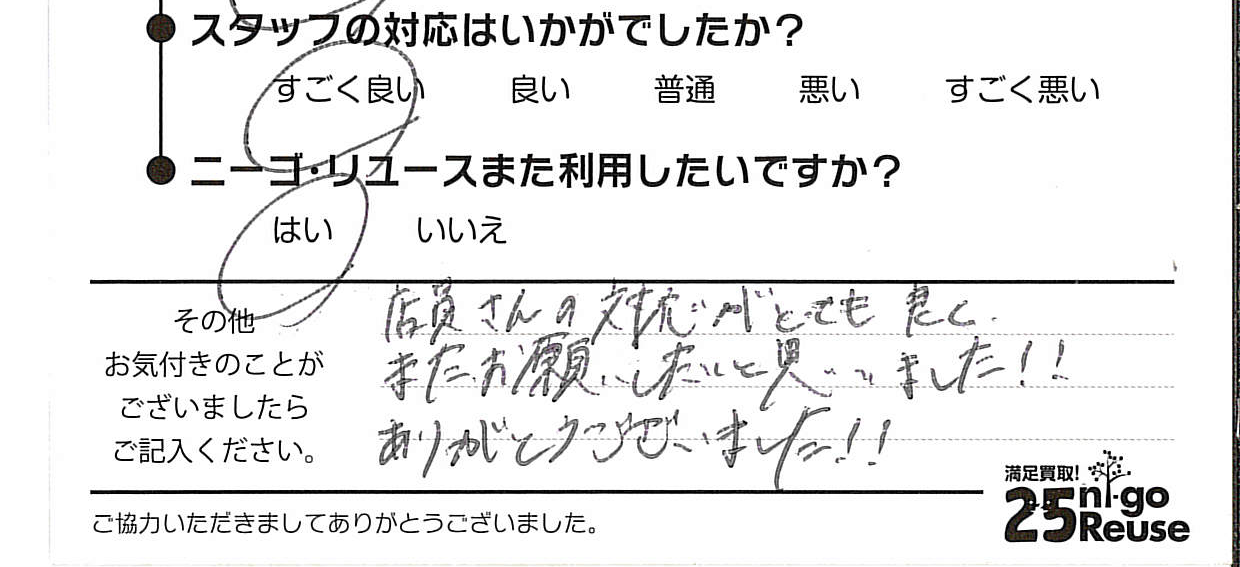 スタッフの対応はいかがでしたか？
すごく良い 良い 普通 悪い すごく悪い
ニーゴ・リユースまた利用したいですか？
はい いいえ
その他
お気付きのことが
ございましたら
ご記入ください。
店員さんの対応がとても良く、
またお願いしたいと思いました！！
ありがとうございました！！
満足買取！
25 ni-go
Reuse
ご協力いただきましてありがとうございました。